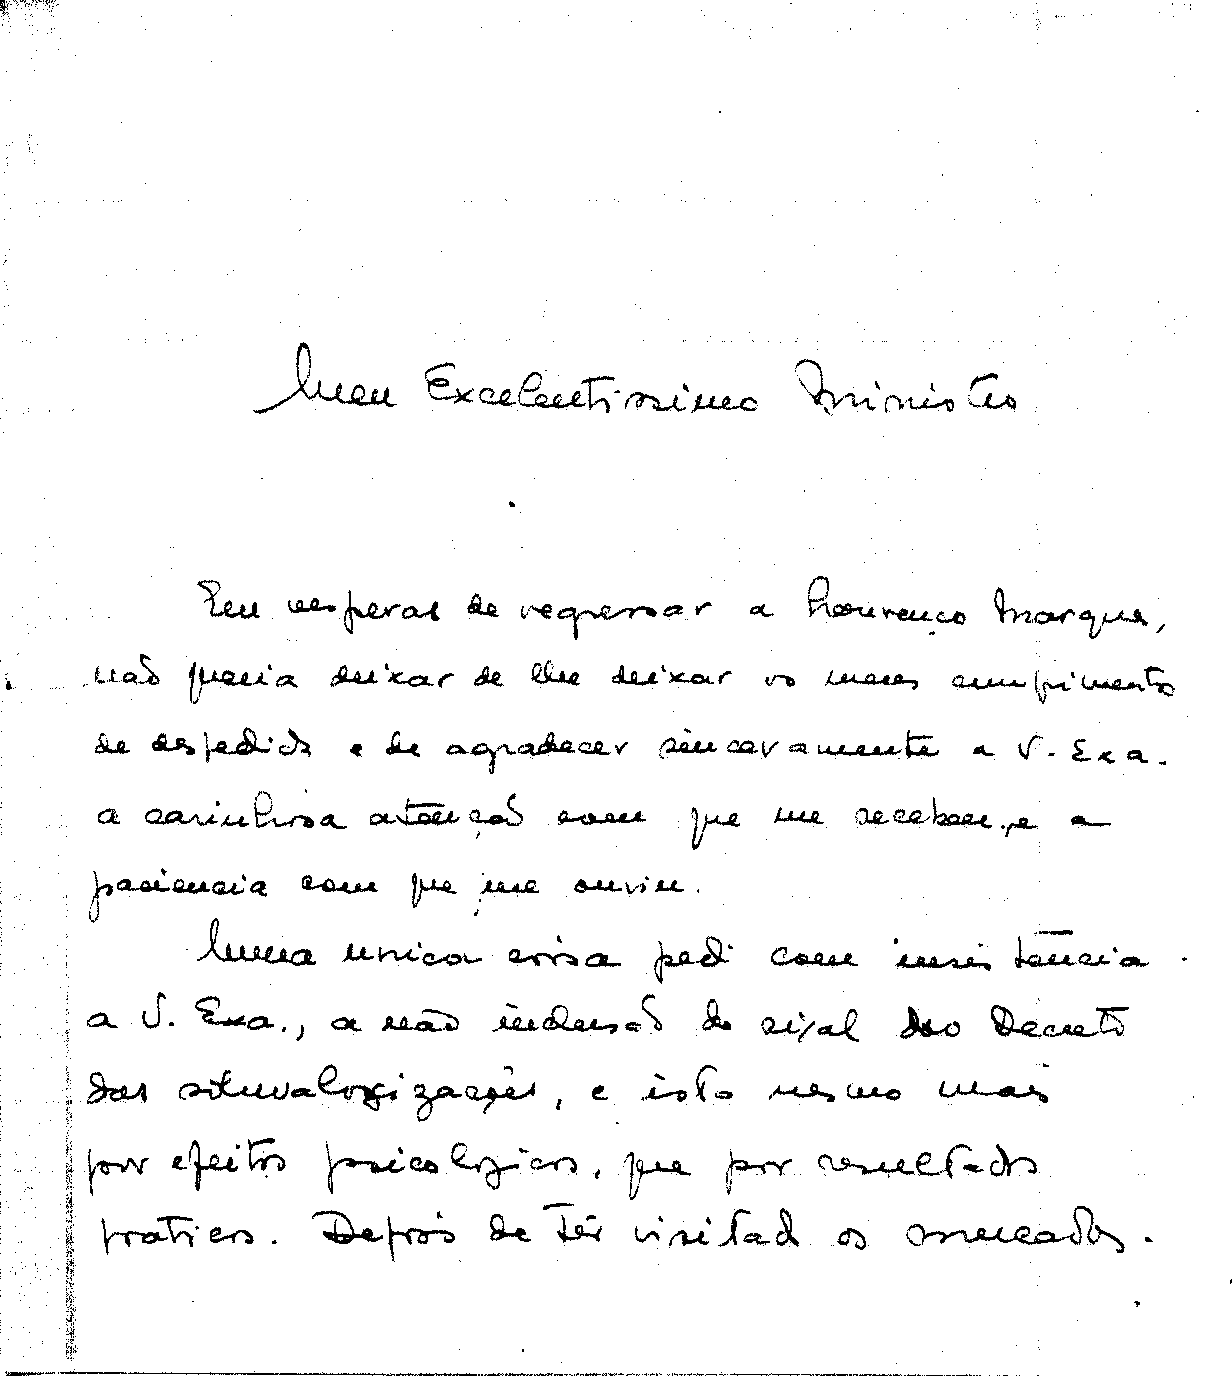 Meu Excelentissimo Ministro
Em vesperas de regressar a Lourenço Marques,
não queria deixar de lhe deixar os meus cumprimentos
de despedida e de agradecer sinceramente a V. Exa.
a carinhosa atenção com que me recebeu, e a
paciencia com que me ouviu.
Numa unica coisa pedi com insistência
a V. Exa., a não inclusão do sisal no Decreto
das sobrevalorizações, e isto mesmo mais
por efeitos psicologicos, que por resultados
praticos. Depois de têr visitado os mercados.